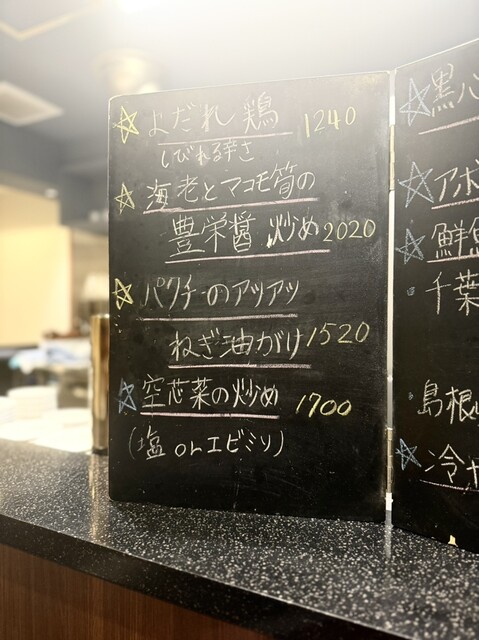 よだれ鶏 1240
しびれる辛さ
海老とマコモ筍の
豊栄醤炒め 2020
パクチーのアツアツ
ねぎ油がけ 1520
空芯菜の炒め 1700
(塩 orエビミソ)
黒
アボ
鮮魚
千葉
島根
冷や